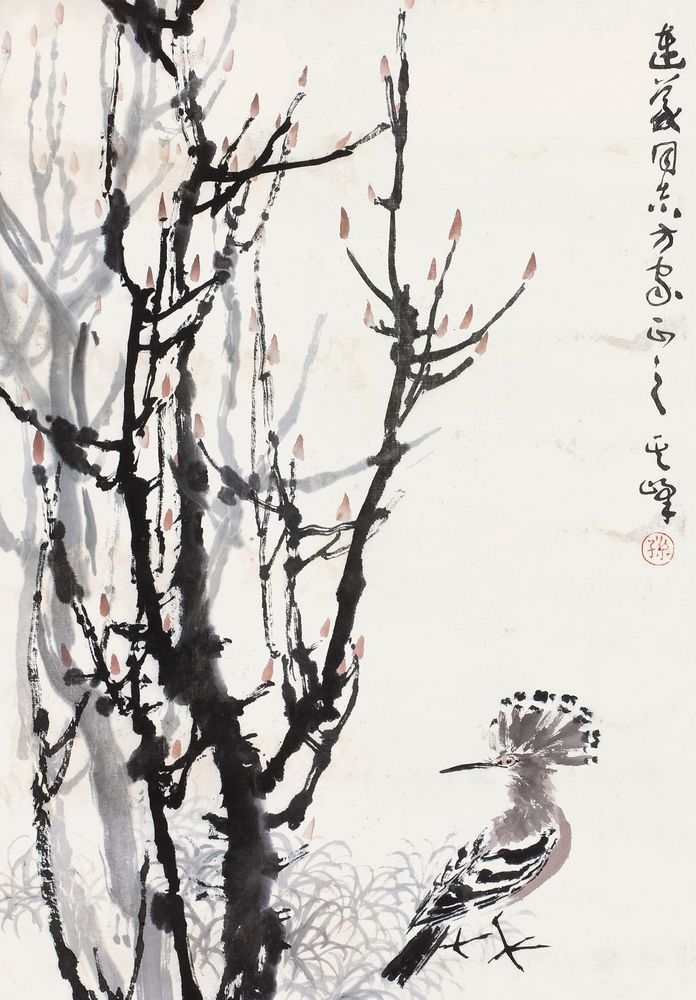 連義同志方家正之 其峰
孫